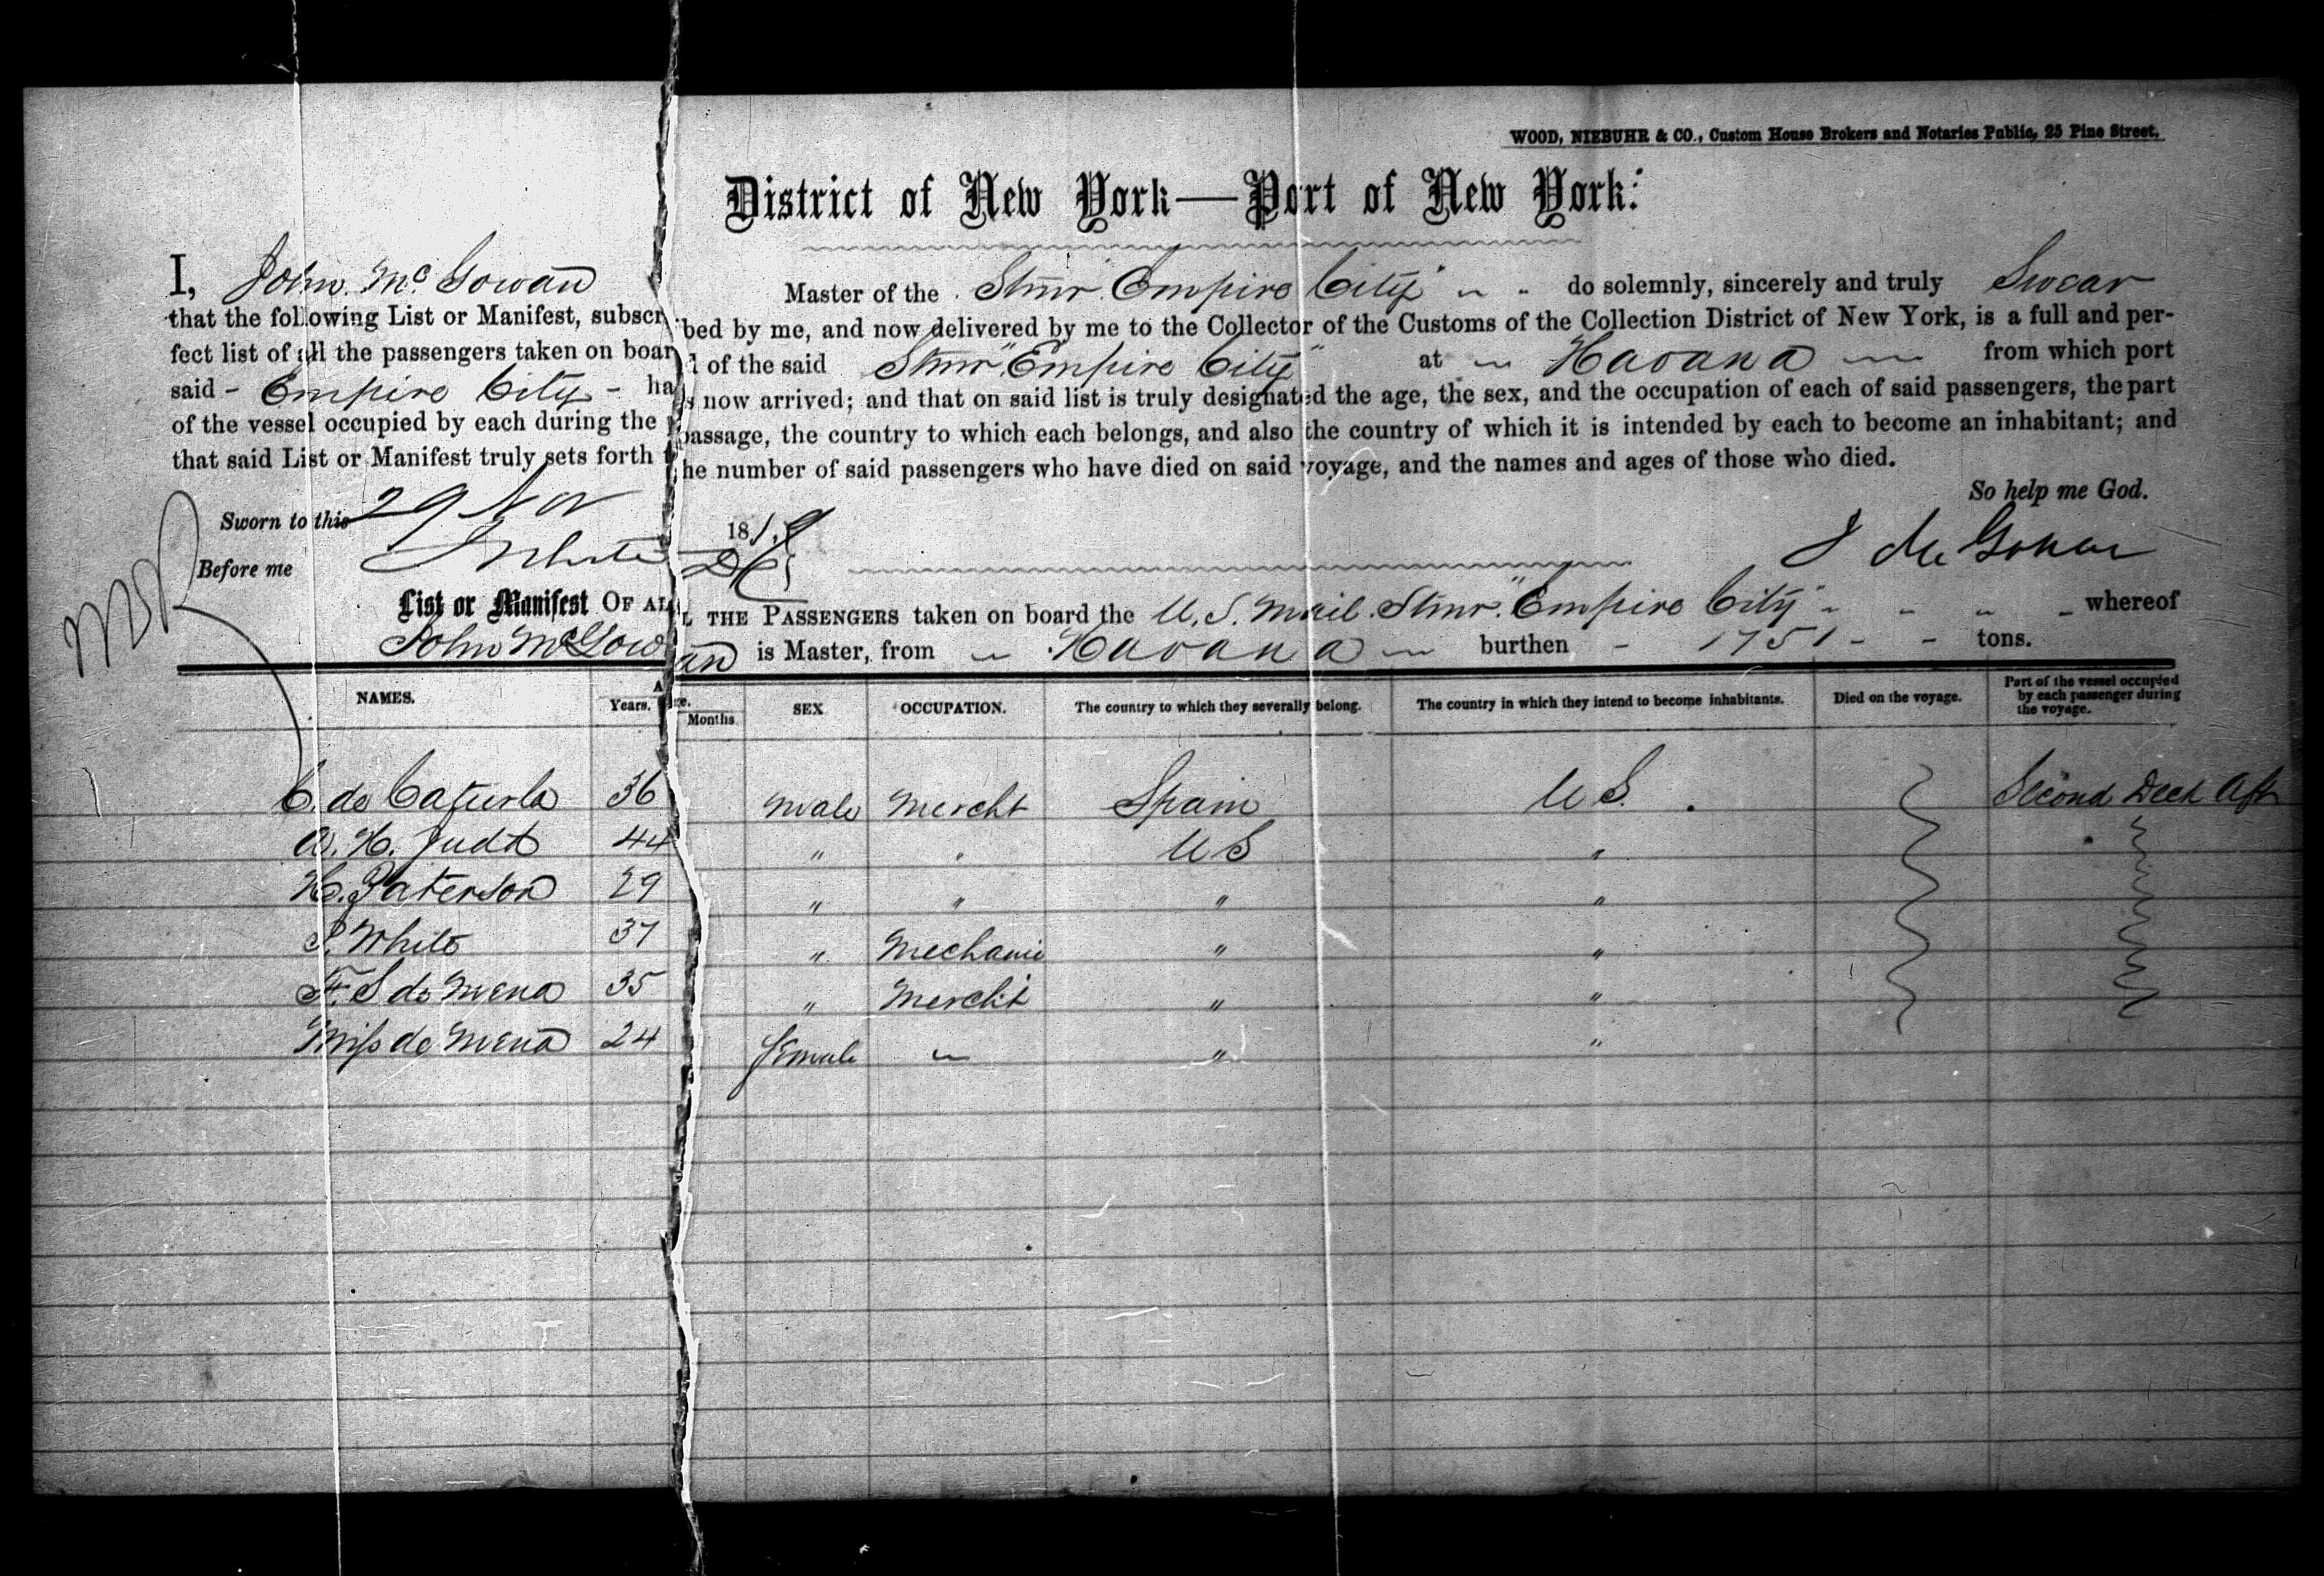 WOOD, NIEBUHR & CO., Custom House Brokers and Notaries Public, 25 Pine Street.
District of New York—Port of New York:
I, John Mc Gowan Master of the Stmr "Empire City" do solemnly, sincerely and truly Swear
that the following List or Manifest, subscribed by me, and now delivered by me to the Collector of the Customs of the Collection District of New York, is a full and per-
fect list of all the passengers taken on board of the said Stmr "Empire City" at Havana from which port
said - Empire City - has now arrived; and that on said list is truly designated the age, the sex, and the occupation of each of said passengers, the part
of the vessel occupied by each during the passage, the country to which each belongs, and also the country of which it is intended by each to become an inhabitant; and
that said List or Manifest truly sets forth the number of said passengers who have died on said voyage, and the names and ages of those who died.
So help me God.
Sworn to this 29 Nov 18
Before me J McGowan
List or Manifest OF ALL THE PASSENGERS taken on board the U.S. Mail Stmr "Empire City" whereof
John McGowan is Master, from Havana burthen - 1751 - tons.
NAMES. Age. Years. Months. SEX OCCUPATION. The country to which they severally belong. The country in which they intend to become inhabitants. Died on the voyage. Part of the vessel occupied by each passenger during the voyage.
C. de Caturla 36 male Mercht Spain U S. Second Deck Aft
H. Judt 44 " " U S "
H. Paterson 29 " " " "
White 37 " Mechanic " "
F. S de Mena 35 " Mercht " "
Miss de Mena 24 female " "